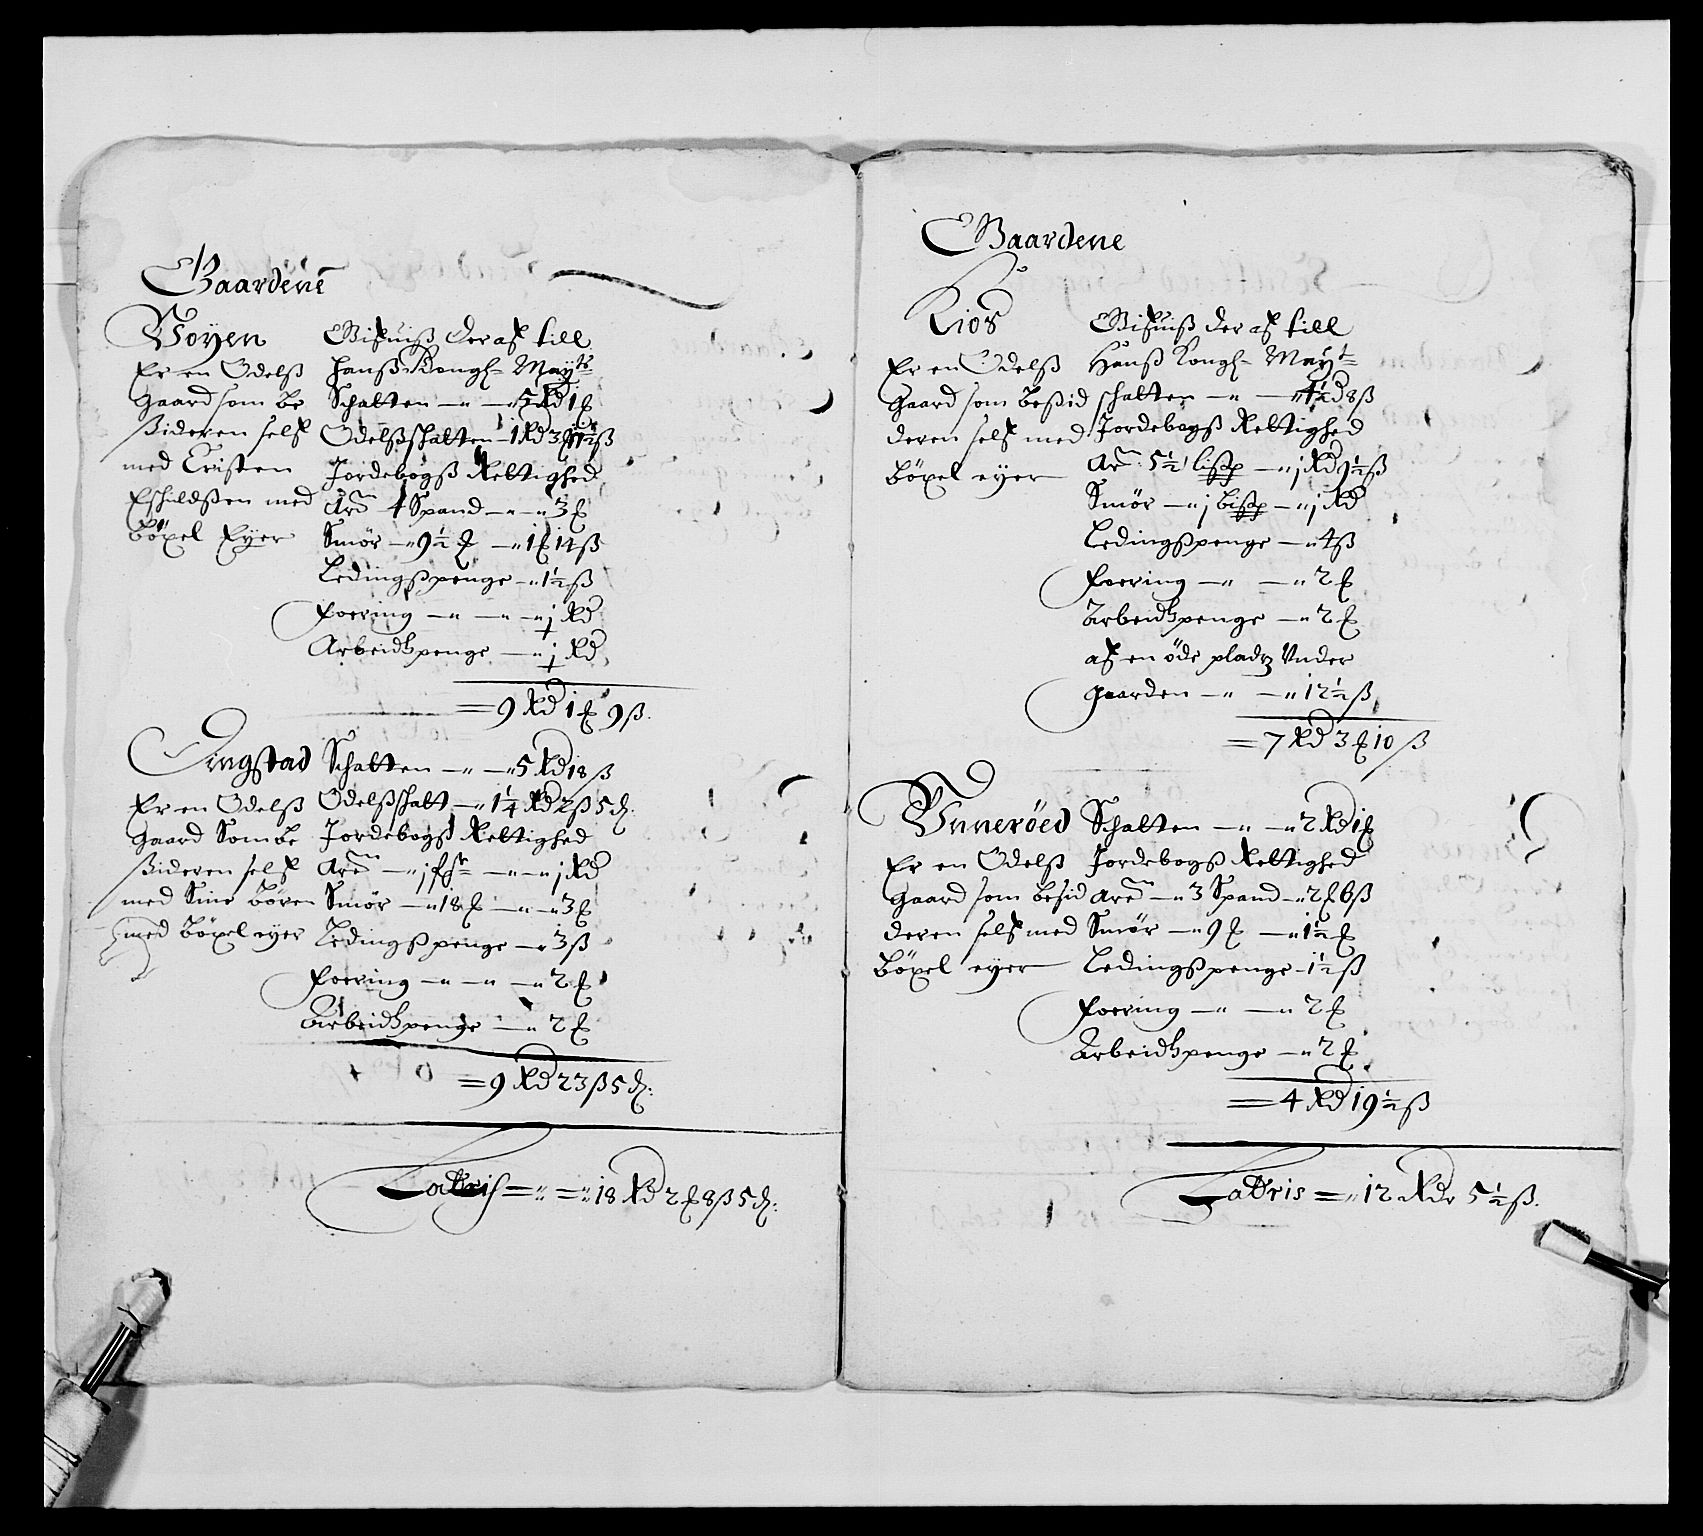 Gaardene
Woyen
Er en Odelß
gaard som be
ßideren self
med Cristen
Eschildßen med
böxel Eyer
Gifuiß der af till
hanß Kongl: Mayts
Schatten — 5 Rd 1 £
Odelßschatten — 1 Rd
Jordebogß Rettighed
4 Spand — 3 £
Smör — 9½ £ — 1 £ 14 ß
Ledingßpenge — 1½ ß
Foering — j Rd
Arbeidtzpenge — j Rd
= 9 Rd 1 £ 9 ß.
Ringstad
Er en Odelß
gaard Som be
ßideren self
med Sine Bören
med böxel eyer
Schatten — 5 Rd 18 ß
Odelßschatt — 1¼ Rd 2 ß 5 d:
Jordebogß Rettighed
— j Rd
Smör — 18 £ — 3 £
Ledingßpenge — 3 ß
Foering — 2 £
Arbeidtzpenge — 2 £
= 9 Rd 23 ß 5 d:
Lattris = 18 Rd 2 £ 8 ß 5 d:
Gaardene
Kios
Er en Odelß
gaard som beßid
deren self med
böxel eyer
Gifuiß der af till
Hanß Kongl: Mayts
schatten — 4½ d 8 ß
Jordebogß Rettighed
5½ lißp — j Rd 9½ ß
Smör — j lißp — j Rd
Ledingßpenge — 4 ß
Foering — 2 £
Arbeidtzpenge — 2 £
af en öde pladtz Under
gaarden — 12½ ß
= 7 Rd 3 £ 10 ß
Unneröed
Er en Odelß
gaard som besid
deren self med
böxel eyer
Schatten — 2 Rd 1 £
Jordebogß Rettighed
3 Spand — 2 £ 6 ß
Smör — 9 £ — 1½ £
Ledingßpenge — 1½ ß
Foering — 2 £
Arbeidtzpenge — 2 £
= 4 Rd 19½ ß
Lattris = 12 Rdr 5½ ß.